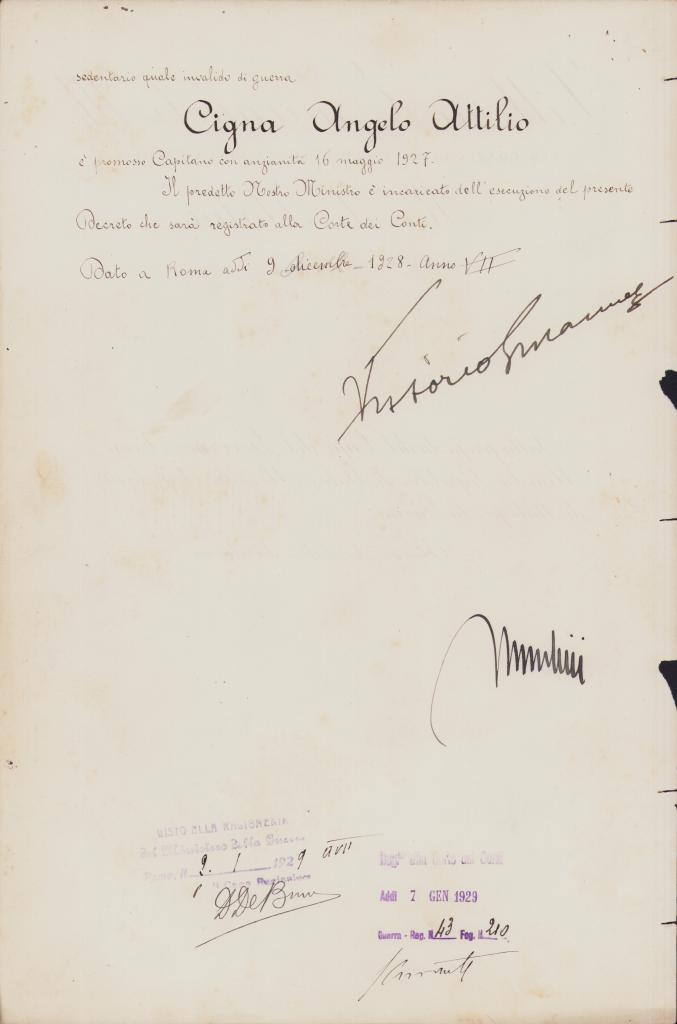 sedentario quale invalido di guerra
Cigna Angelo Attilio
è promosso Capitano con anzianità 16 maggio 1927.
Il predetto Nostro Ministro è incaricato dell'esecuzione del presente
Decreto che sarà registrato alla Corte dei Conti.
Dato a Roma addì 9 dicembre 1928 - Anno VII
Vittorio Emanuele
Mussolini
VISTO ALLA RAGIONERIA
del Ministero della Guerra
Roma, li 2. 1 1929 a VII
Il Capo Ragioniere
Reg.to alla Corte dei Conti
Addì 7 GEN 1929
Guerra - Reg. N. 43 Fog. N. 210